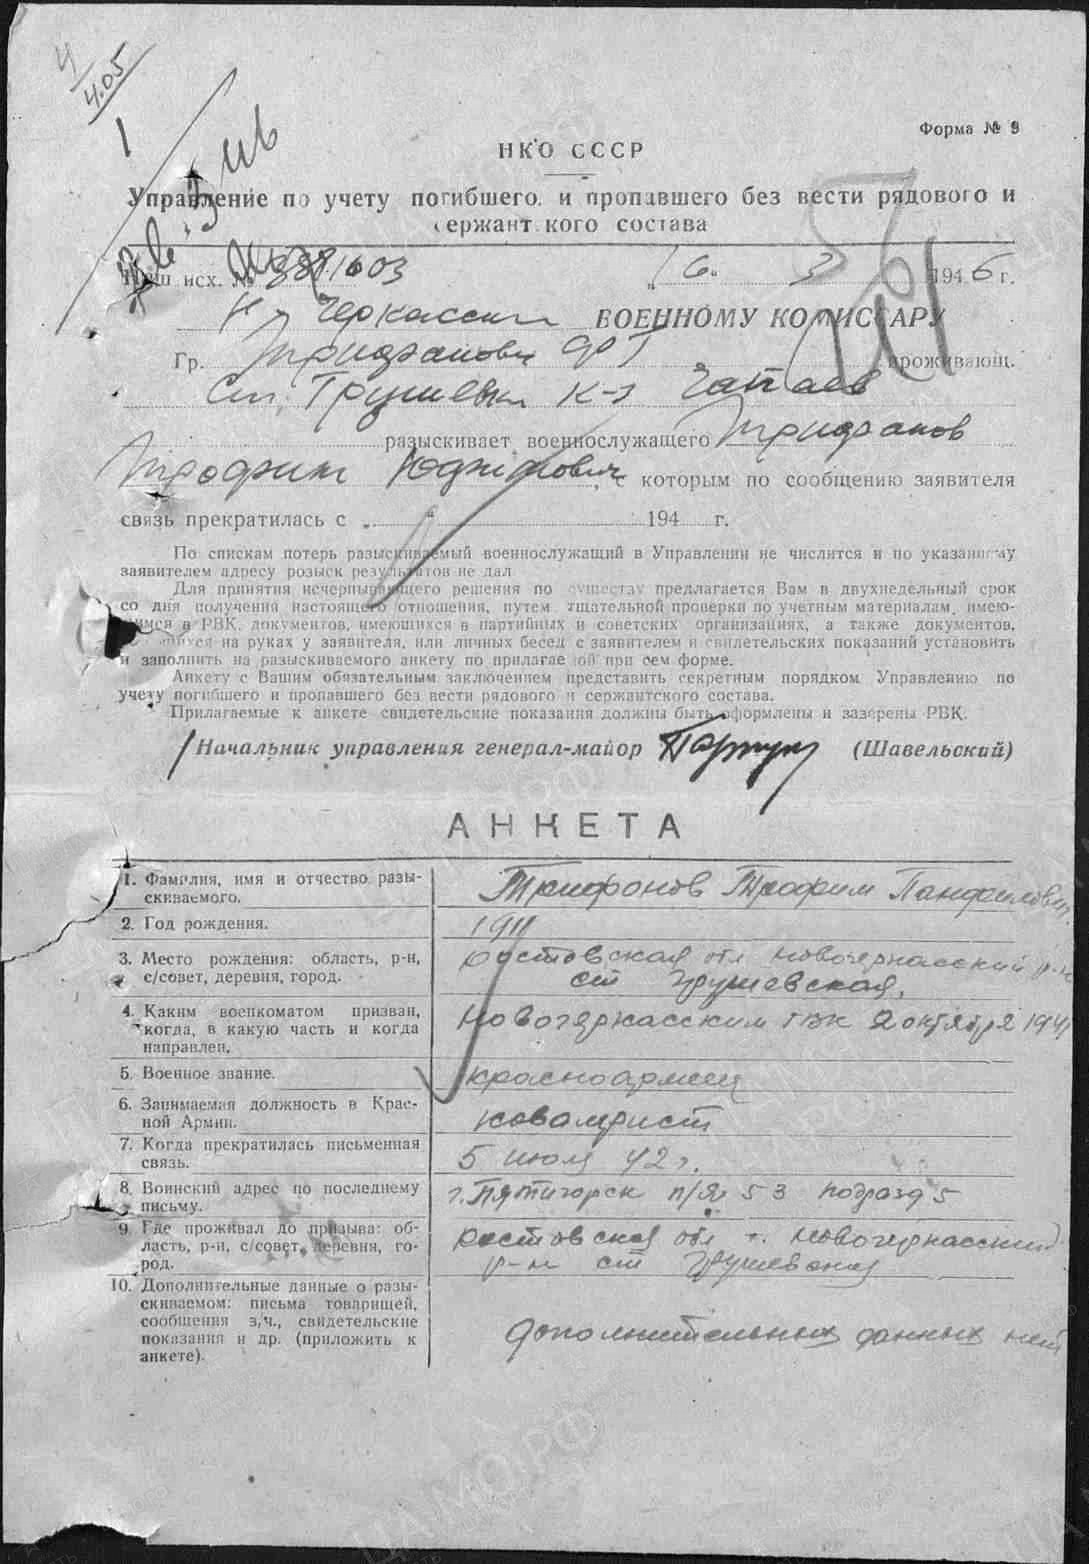 4
4.05
1
Форма № 9
НКО СССР
Управление по учету погибшего и пропавшего без вести рядового и
сержантского состава
Наш исх. № 1603
"6" 3 1946 г.
Н-Черкасским ВОЕННОМУ КОМИССАРУ
Гр. проживающ.
ст. Грушевка к-з Чапаев
разыскивает военнослужащего Трифонов
Трофим , с которым по сообщению заявителя
связь прекратилась с „ " 194 г.
По спискам потерь разыскиваемый военнослужащий в Управлении не числится и по указанному
заявителем адресу розыск результатов не дал
Для принятия исчерпывающего решения по существу предлагается Вам в двухнедельный срок
со дня получения настоящего отношения, путем тщательной проверки по учетным материалам, имею-
щимся в РВК, документов, имеющихся в партийных и советских организациях, а также документов,
имеющихся на руках у заявителя, или личных бесед с заявителем и свидетельских показаний установить
и заполнить на разыскиваемого анкету по прилагаемой при сем форме.
Анкету с Вашим обязательным заключением представить секретным порядком Управлению по
учету погибшего и пропавшего без вести рядового и сержантского состава.
Прилагаемые к анкете свидетельские показания должны быть оформлены и заверены РВК.
Начальник управления генерал-майор (Шавельский)
АНКЕТА
1. Фамилия, имя и отчество разы-
скиваемого.
Трифонов Трофим Панфилович
2. Год рождения.
1911
3. Место рождения: область, р-н,
с/совет, деревня, город.
Ростовская обл Новочеркасский р-н
ст Грушевская,
4. Каким военкоматом призван,
когда, в какую часть и когда
направлен.
Новочеркасским ГВК 2 октября 1941
5. Военное звание.
красноармеец
6. Занимаемая должность в Крас-
ной Армии.
кавалерист
7. Когда прекратилась письменная
связь.
5 июля 42 г.
8. Воинский адрес по последнему
письму.
г. Пятигорск п/я 53 подразд 5
9. Где проживал до призыва: об-
ласть, р-н, с/совет, деревня, го-
род.
Ростовская обл г. Новочеркасский
р-н ст Грушевская
10. Дополнительные данные о разы-
скиваемом: письма товарищей,
сообщения з/ч., свидетельские
показания и др. (приложить к
анкете).
Дополнительных данных нет